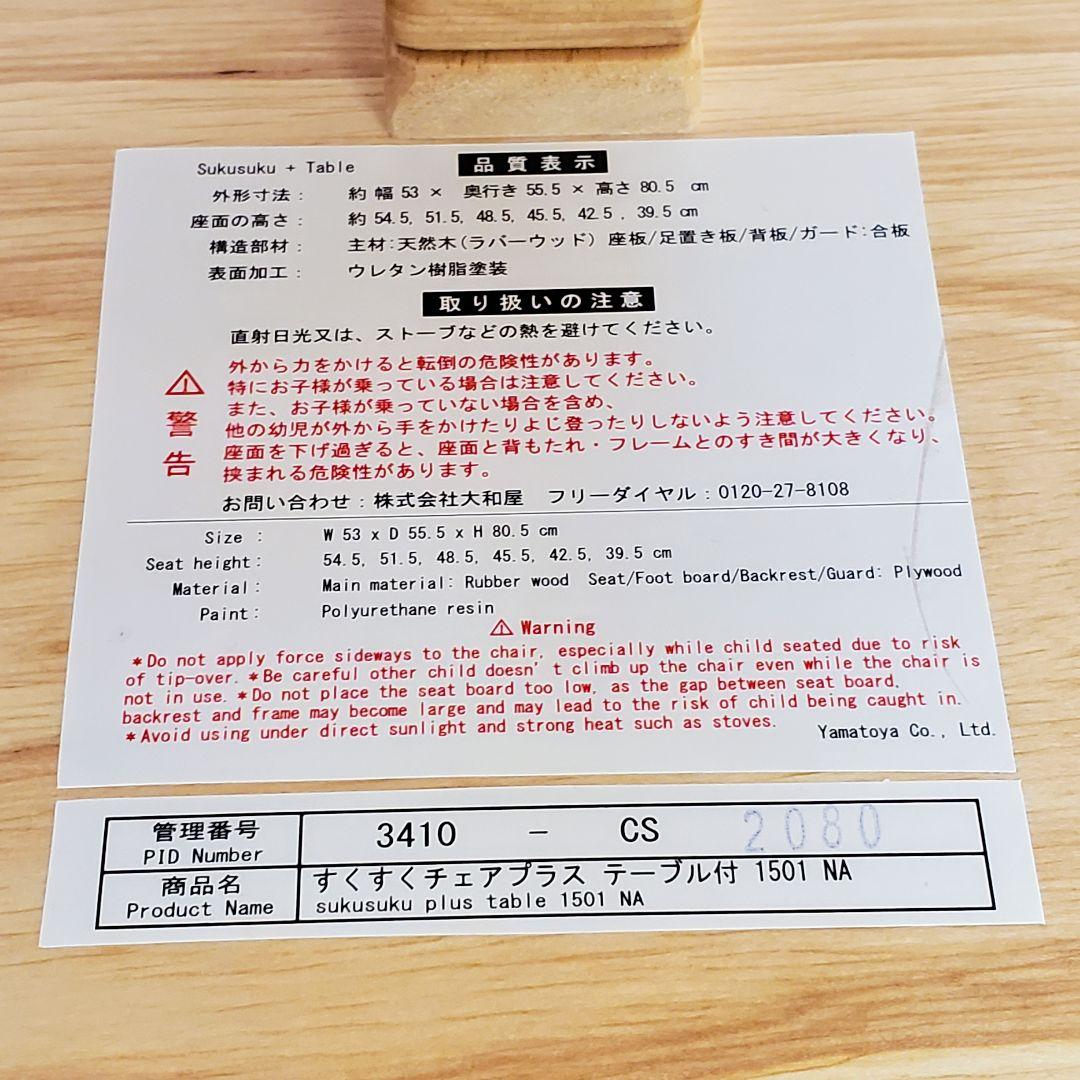 Sukusuku + Table 品質表示
外形寸法: 約 幅 53 × 奥行き 55.5 × 高さ 80.5 cm
座面の高さ: 約 54.5, 51.5, 48.5, 45.5, 42.5 , 39.5 cm
構造部材: 主材:天然木(ラバーウッド) 座板/足置き板/背板/ガード:合板
表面加工: ウレタン樹脂塗装
取り扱いの注意
直射日光又は、ストーブなどの熱を避けてください。
⚠警告
外から力をかけると転倒の危険性があります。
特にお子様が乗っている場合は注意してください。
また、お子様が乗っていない場合を含め、
他の幼児が外から手をかけたりよじ登ったりしないよう注意してください。
座面を下げ過ぎると、座面と背もたれ・フレームとのすき間が大きくなり、
挟まれる危険性があります。
お問い合わせ:株式会社大和屋 フリーダイヤル:0120-27-8108
Size : W 53 x D 55.5 x H 80.5 cm
Seat height: 54.5, 51.5, 48.5, 45.5, 42.5, 39.5 cm
Material: Main material: Rubber wood Seat/Foot board/Backrest/Guard: Plywood
Paint: Polyurethane resin
⚠ Warning
*Do not apply force sideways to the chair, especially while child seated due to risk
of tip-over. *Be careful other child doesn't climb up the chair even while the chair is
not in use. *Do not place the seat board too low, as the gap between seat board,
backrest and frame may become large and may lead to the risk of child being caught in.
*Avoid using under direct sunlight and strong heat such as stoves.
Yamatoya Co., Ltd.
管理番号
PID Number
3410 - CS 2080
商品名
Product Name
すくすくチェアプラス テーブル付 1501 NA
sukusuku plus table 1501 NA